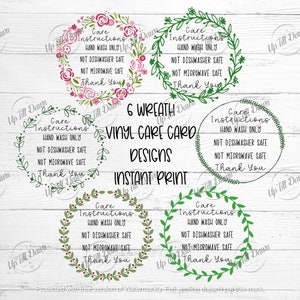 Care
Instructions
HAND WASH ONLY
NOT DISHWASHER SAFE
NOT MICRWAVE SAFE
Thank You
Care
Instructions
HAND WASH ONLY
NOT DISHWASHER SAFE
NOT MICRWAVE SAFE
Thank You
6 WREATH
VINYL CARE CARD
DESIGNS
INSTANT PRINT
Care
Instructions
HAND WASH ONLY
NOT DISHWASHER SAFE
NOT MICRWAVE SAFE
Thank You
Care
Instructions
HAND WASH ONLY
NOT DISHWASHER SAFE
NOT MICRWAVE SAFE
Thank You
Care
Instructions
HAND WASH ONLY
NOT DISHWASHER SAFE
NOT MICRWAVE SAFE
Thank You
Care
Instructions
HAND WASH ONLY
NOT DISHWASHER SAFE
NOT MICRWAVE SAFE
Thank You
Up Till Dawn